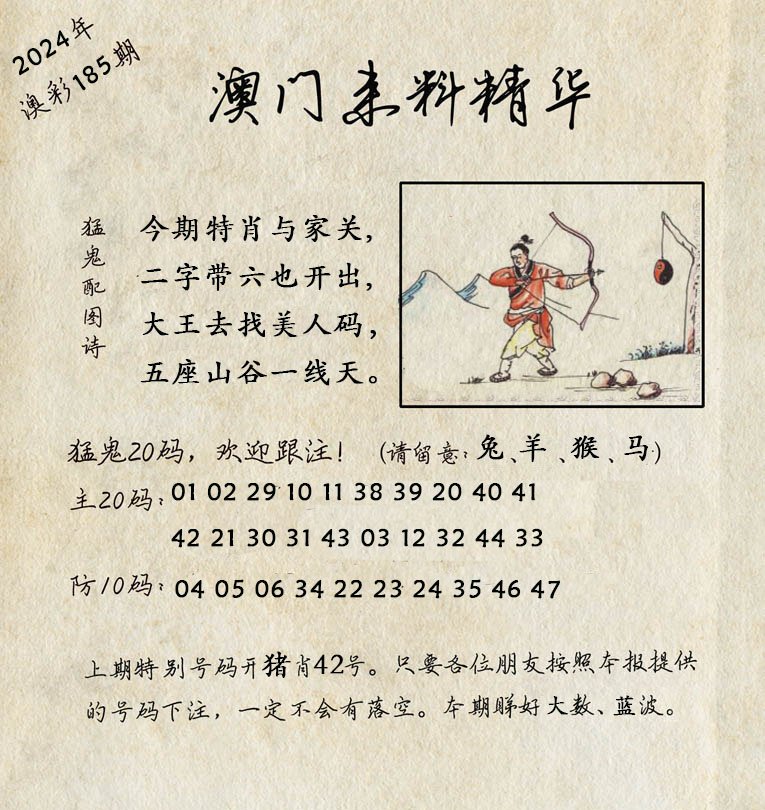 2024年
澳彩185期
澳门来料精华
猛鬼配图诗
今期特肖与家关，
二字带六也开出，
大王去找美人码，
五座山谷一线天。
猛鬼20码，欢迎跟注！（请留意：兔、羊、猴、马）
主20码：01 02 29 10 11 38 39 20 40 41
42 21 30 31 43 03 12 32 44 33
防10码：04 05 06 34 22 23 24 35 46 47
上期特别号码开猪肖42号。只要各位朋友按照本报提供
的号码下注，一定不会有落空。本期睇好大数、蓝波。